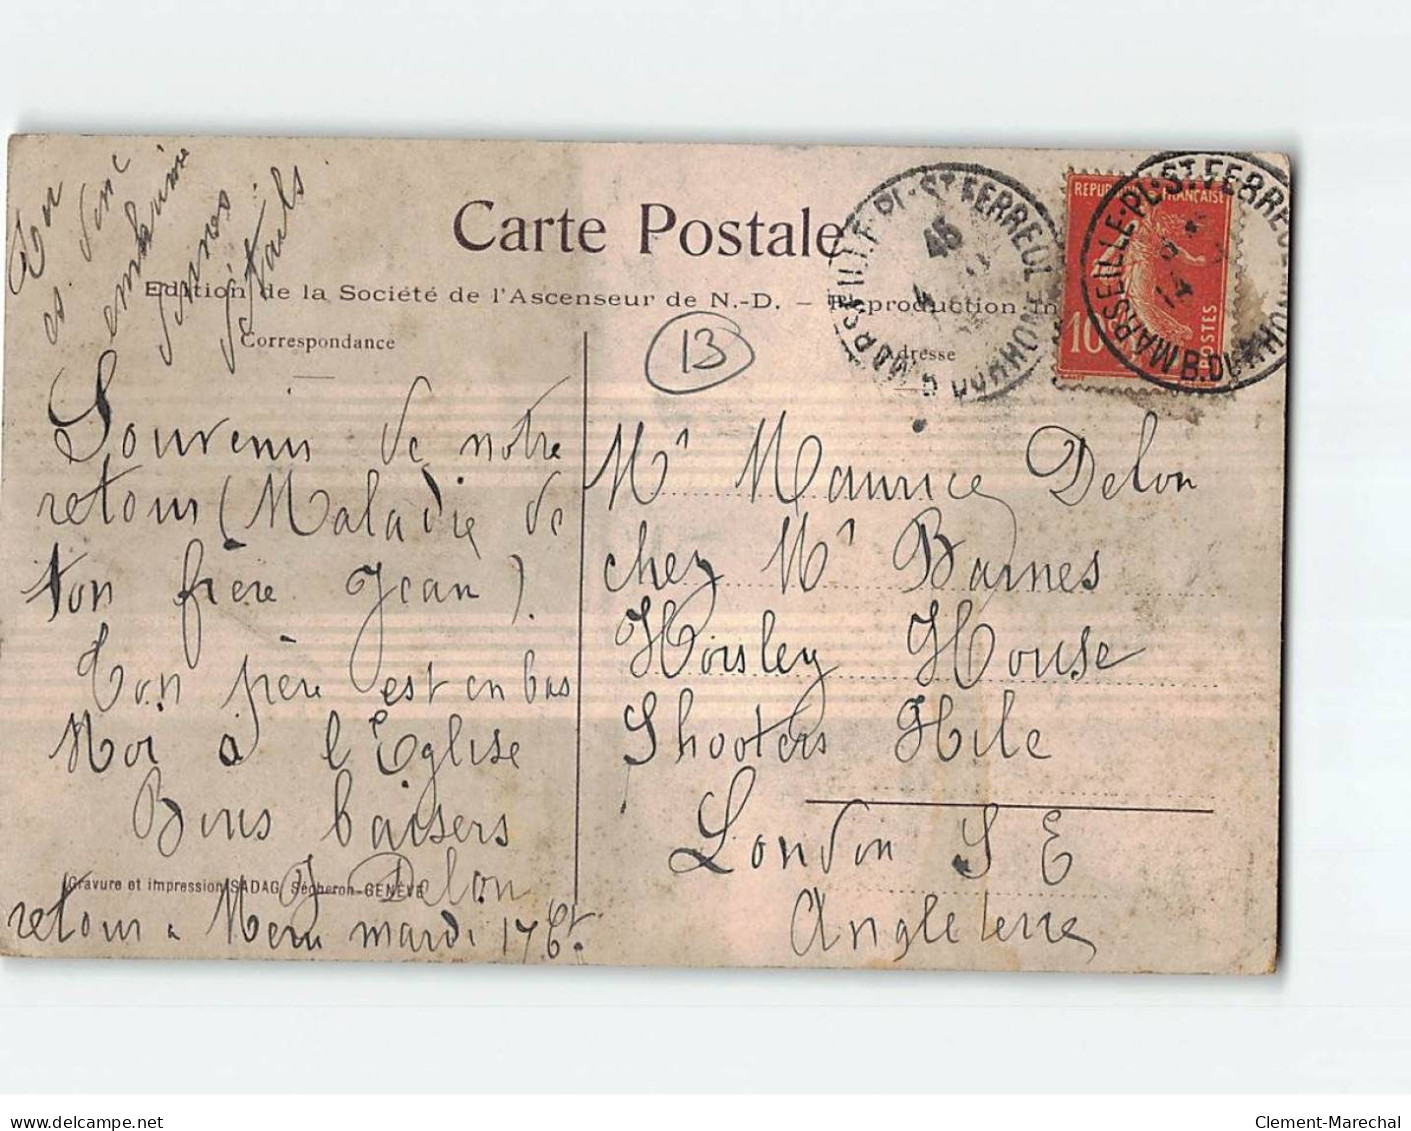 Tu
es donc
enrhumé
donnes
détails.
Carte Postale
Edition de la Société de l'Ascenseur de N.-D. — Reproduction in
Correspondance
Adresse
13
MARSEILLE-PL.-ST FERREOL
B. DU RHONE
45
MARSEILLE-PL.-ST FERREOL
B. DU RHONE
REPUBLIQUE FRANÇAISE
10
POSTES
Souvenir de notre
retour (Maladie de
ton frère Jean).
Ton père est en bas
Moi à l'Eglise
Bons baisers
J Delon
Gravure et impression SADAG, Sécheron-GENÈVE
retour à Meru mardi 17 Ct.
Mr Maurice Delon
chez Mr Barnes
Horsley House
Shooters Hile
London S E
Angleterre
delcampe.net
Clement-Marechal